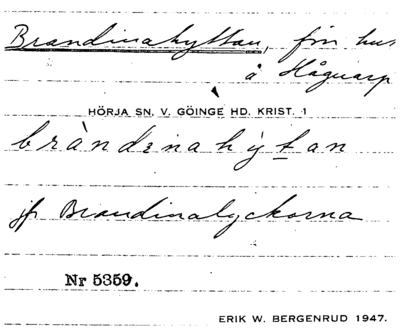 Brandinahyttan, f.n hus
å Hågnarp
HÖRJA SN. V. GÖINGE HD. KRIST. 1
brànde̱nahỳt̠an
jf Brandinalyckorna
Nr 5359.
ERIK W. BERGENRUD 1947.